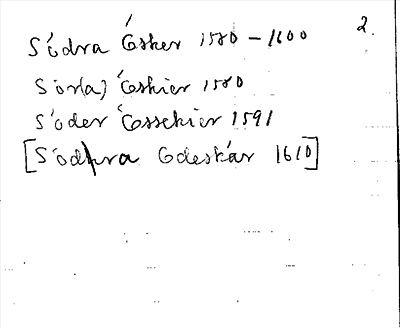 2.
Södra Esker 1580 – 1600
Sör(a) Eskier 1580
Söder Essekier 1591
[Södhra Odeskär 1610]